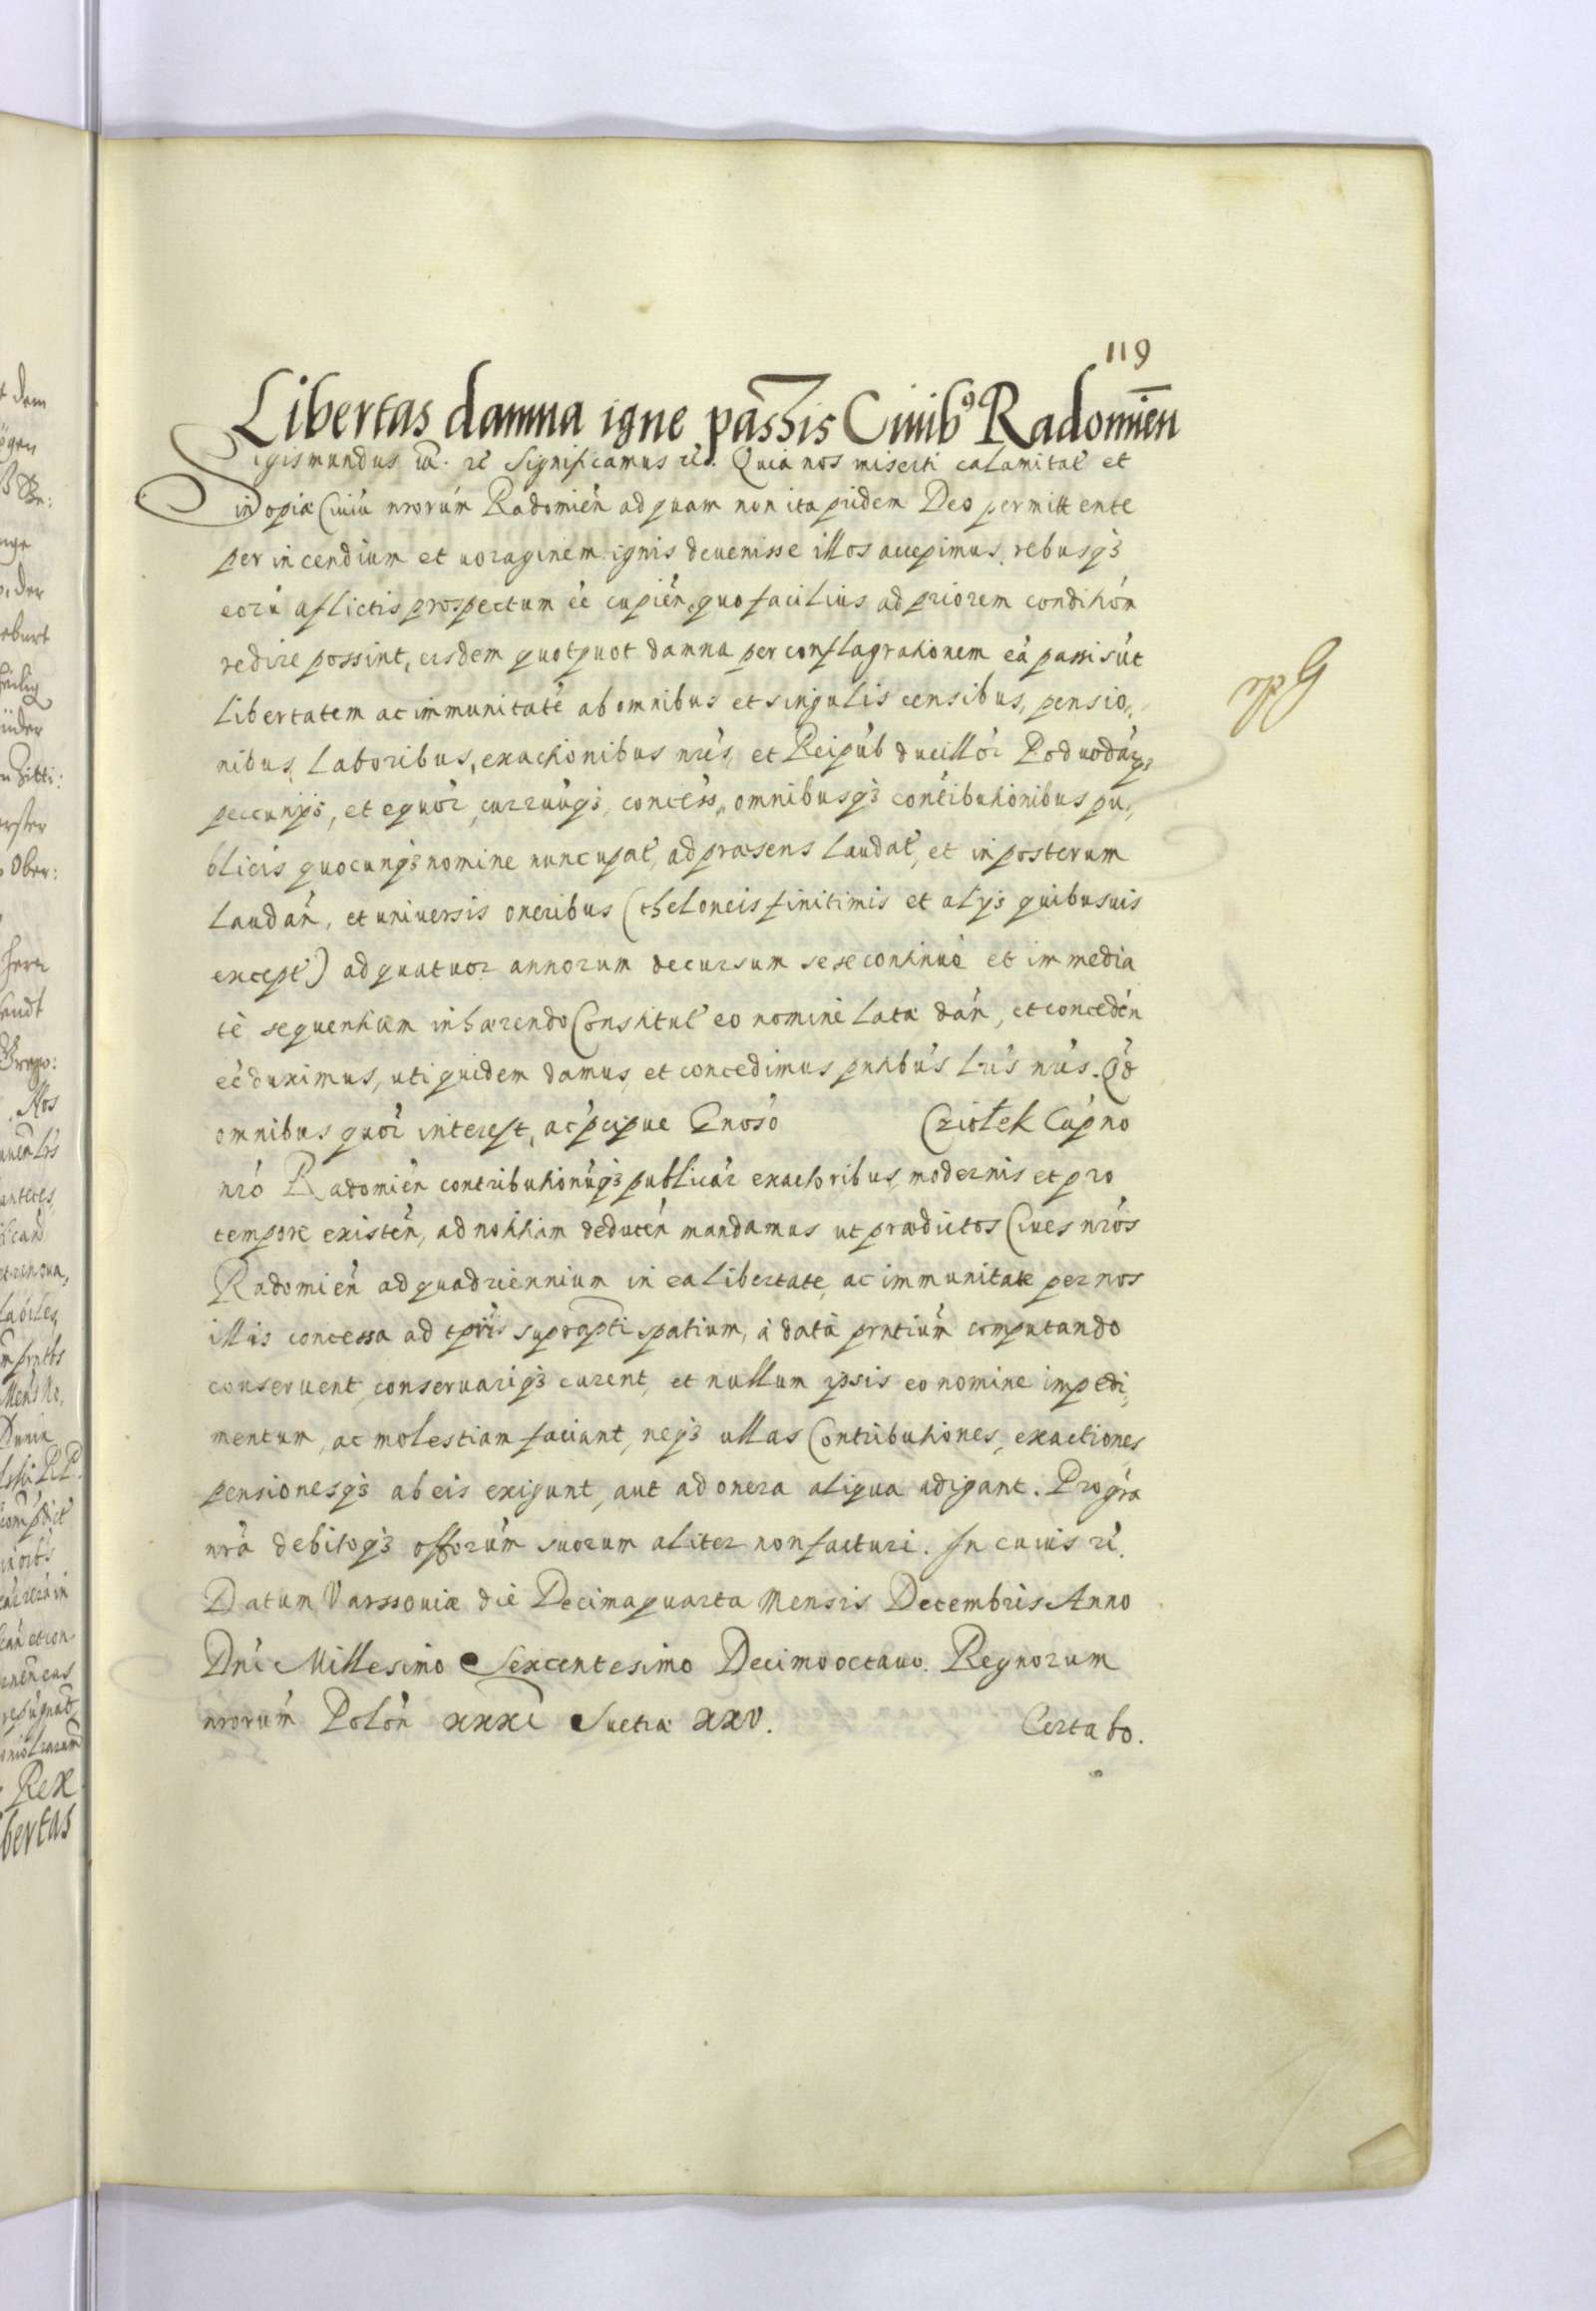 119
Libertas damna igne passis Civib9 Radomien
Sigismundus Significamus Quia nos miserti calamitat et
inopiæ Civiu nrorum Radomien ad quam non ita pridem Deo permittente
per incendium et voraginem ignis devenisse illos accepimus, rebusq3
eoru aflictis prospectum ee cupien, quo facilius ad priorem condition
redire possint, eisdem quotquot damna per conflagrationem ea passi sut
Libertatem ac immunitate ab omnibus et singulis censibus, pensio,,
nibus, Laboribus, exactionibus nris, et Reipub ducillor Podvodarq3
peccunijs, et equor, curruuq3, concess,, omnibusq3 contibutionibus pu,,
blicis quocunq3 nomine nuncupat, ad præsens Laudat, et in posterum
Laudan, et universis oneribus (theloneis finitimis et alijs quibusuis
except) ad quatuor annorum decursum sese continuè et immedia
tè sequentium inhærendo Constitut eo nomine Lata dan, et conceden
ee duximus, uti quidem damus, et concedimus pntibus Lris nris. Qd
omnibus quor interest, ac pcipue Gnoso Cziołek Capno
nro Radomien contributionuq3 publicar exactoribus, modernis et pro
tempore existen, ad notitiam deducen mandamus ut prædictos Cives nros
Radomien ad quadriennium in ea libertate, ac immunitate per nos
illis concessa ad tpris suprapti spatium, à datà pntium computando
conservent, conservariq3 curent, et nullum ipsis eo nomine impedi,,
mentum, ac molestiam faciant, neq3 ullas Contributiones, exactiones
pensionesq3 ab eis exigunt, aut ad onera aliqua adigant. Pro gra
nra debitoq3 offorum suorum aliter non facturi. In cuius ri.
Datum Varssoviæ die Decimaquarta Mensis Decembris Anno
Dni Millesimo Sexcentesimo Decimooctavo. Regnorum
nrorum Polon xxxi Suetiæ xxv. Certa fo.